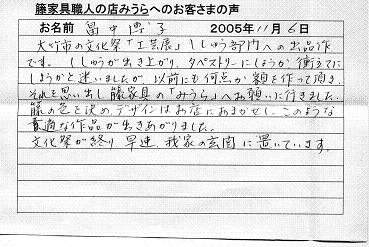 藤家具職人の店みうらへのお客さまの声
お名前 畠中 博子 2005年11月6日
大竹市の文化祭「工芸展」ししゅう部門への出品作
です。ししゅうが出き上がり、タペストリーにしようか衝立に
しようかと迷いましたが、以前にも何点か額を作って頂き、
それを思い出し藤家具の「みうら」へお願いに行きました。
藤の色を決め、デザインはお店におまかせし、このような
素適な作品が出きあがりました。
文化祭が終り早速、我家の玄関に置いています。